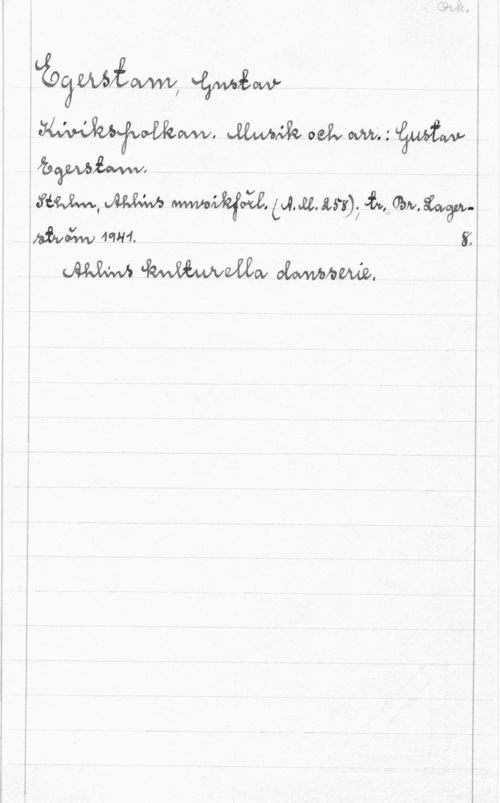 Ork.
Egerstam, Gustav
Kivikspolkan. Musik och arr.: Gustav
Egerstam.
Sthlm, Ahlins musikförl. (A.M. 258); tr. Br. Lager-
ström 1941. 8.
Ahlins kulturella dansserie.